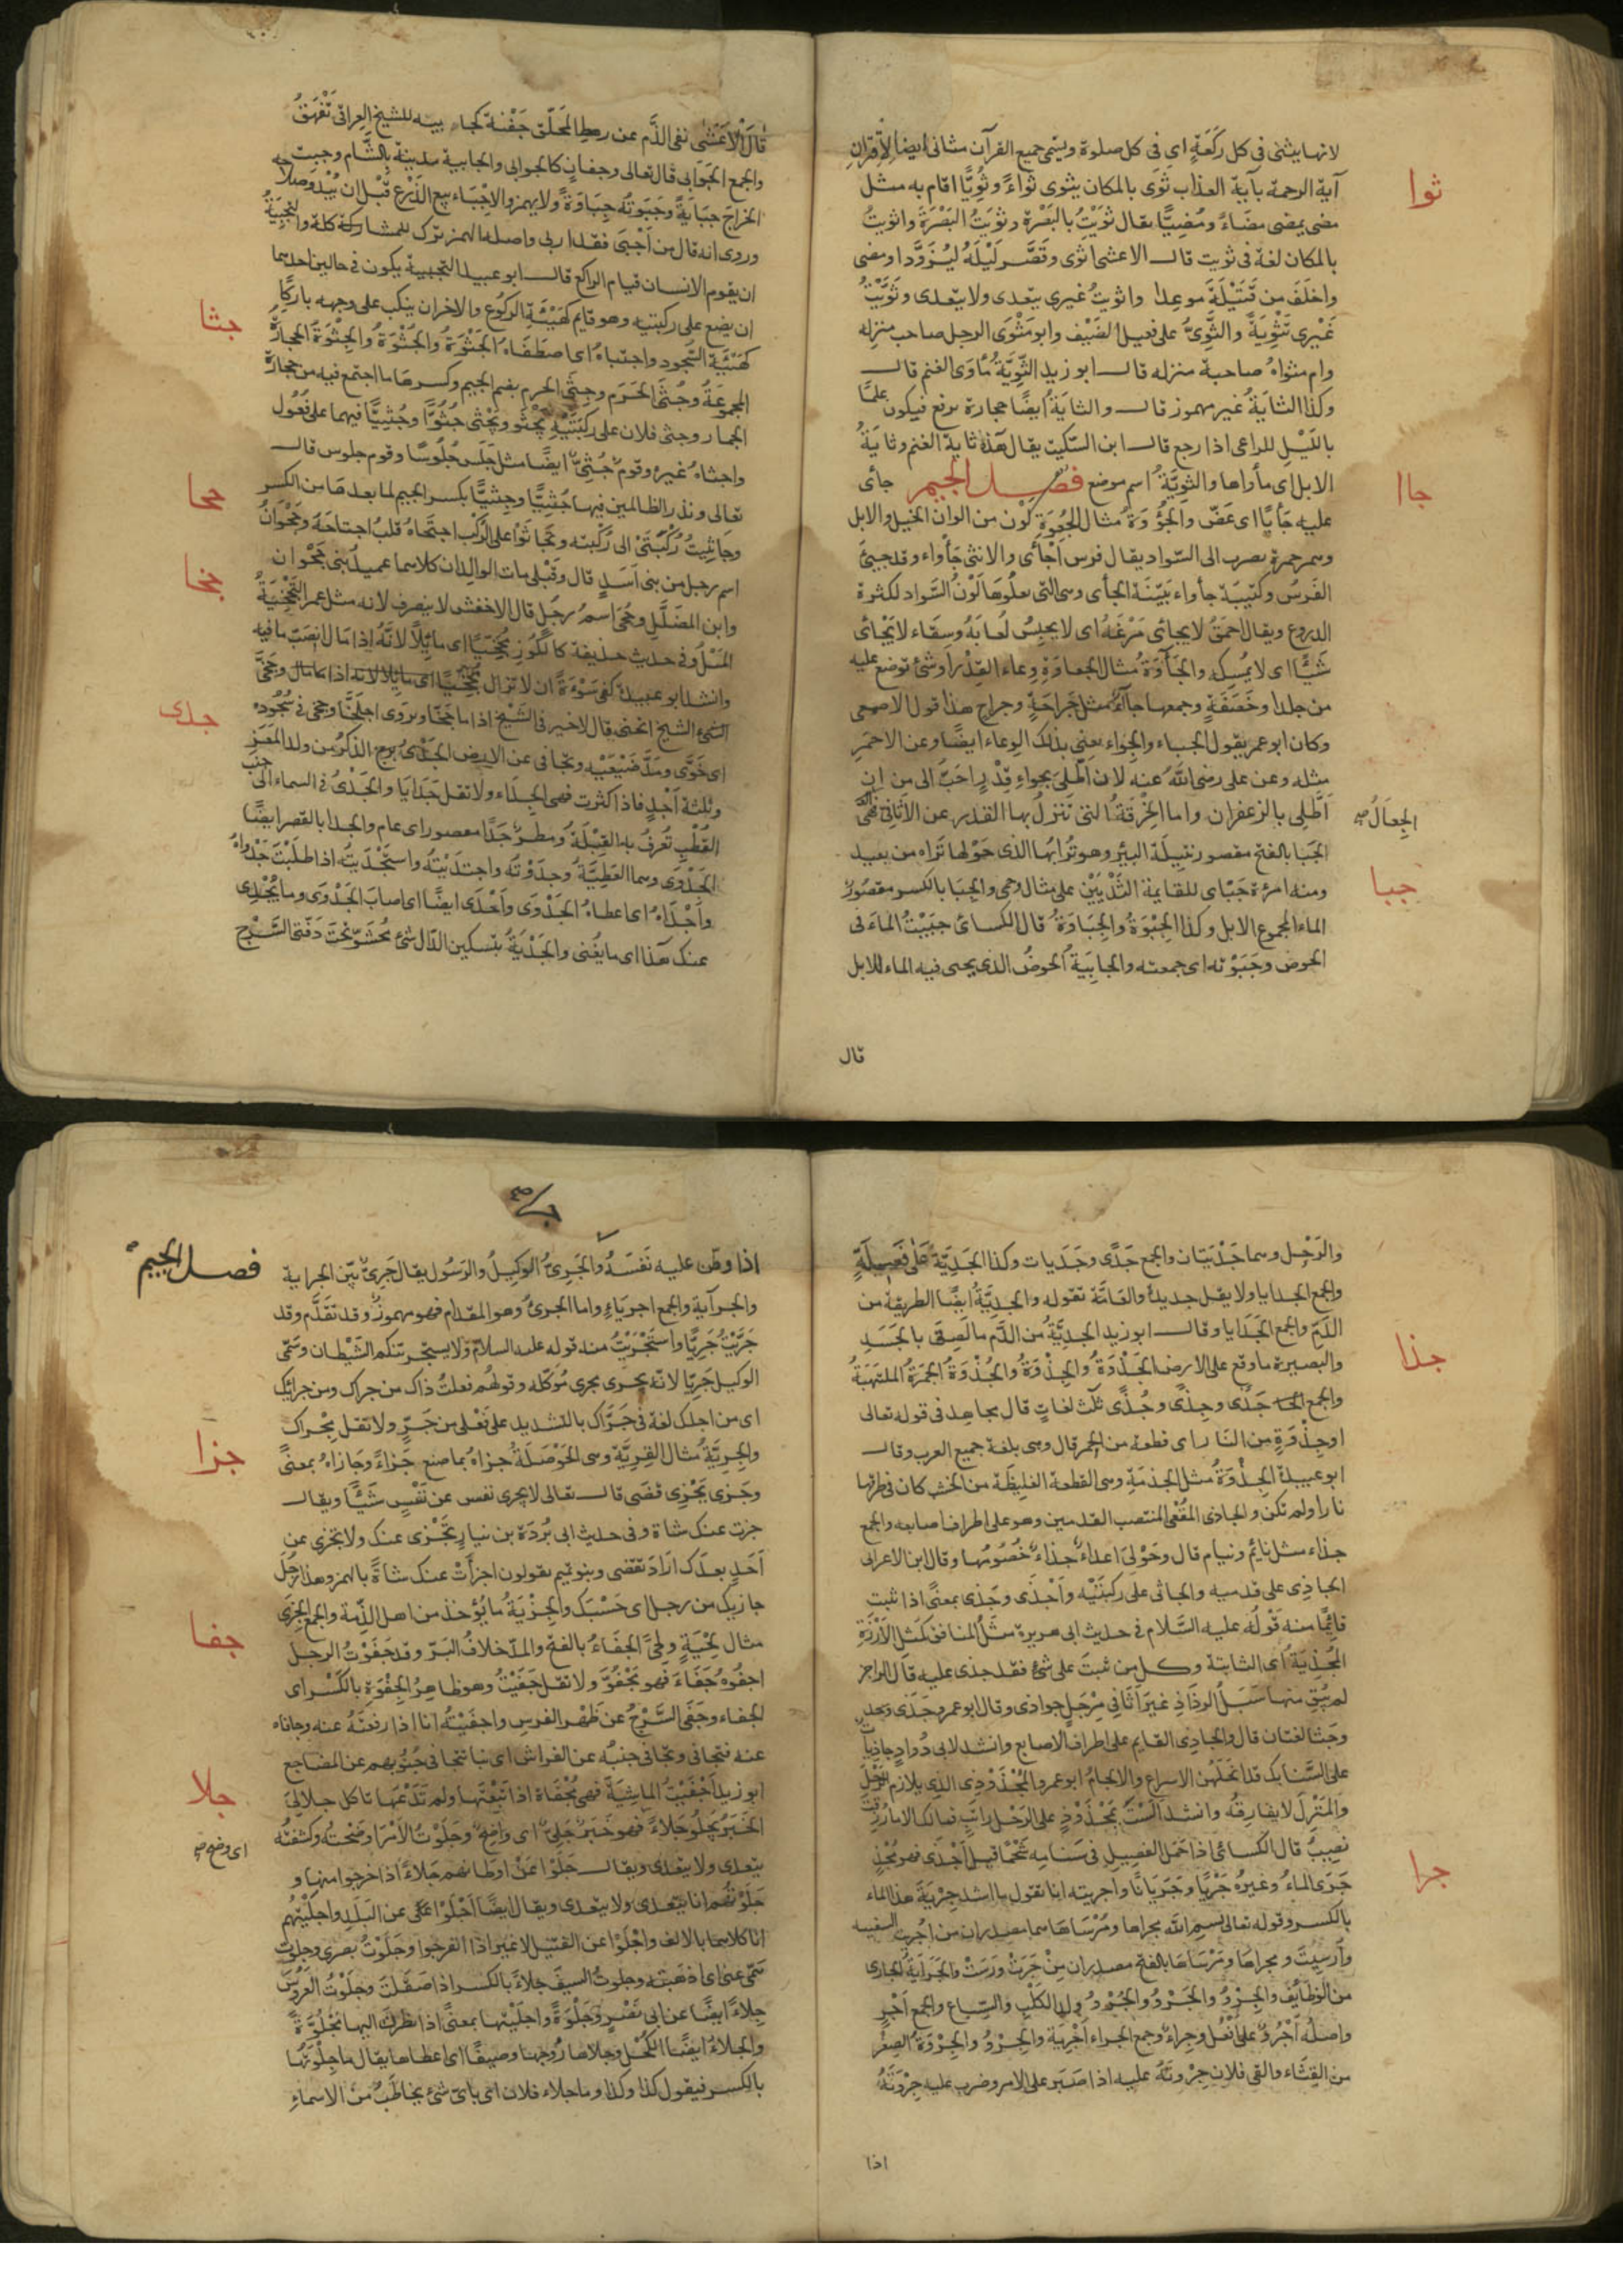 لانها يثنى فى كل ركعة اى فى كل صلوة ويسمى جميع القرآن مثانى ايضا لاقتران
ثوا
آية الرحمة بآية العذاب ثوى بالمكان يثوى ثواءً وثُوِيًّا اقام به مثل
مضى يمضى مضاءً ومُضِيًّا يقال ثويت بالبصرة وثويت البصرة واثويت
بالمكان لغة فى ثويت قال الاعشى اثوى وقصّر ليله ليزوّدا ومضى
واخلف من قتيلة موعدا واثويت غيرى يتعدى ولا يتعدى وثوّيت
غيرى تثوية والثوىّ على فعيل الضيف وابو مثوى الرجل صاحب منزله
وام مثواه صاحبة منزله قال ابو زيد الثويّة مأوى الغنم قال
وكذا الثاية غير مهموز قال والثاية ايضًا حجارة ترفع فيكون علمًا
بالليل للراعى اذا رجع قال ابن السكيت يقال هذه ثاية الغنم وثاية
الابل اى مأواها والثويّة اسم موضع فصل الجيم جأى
جاا
عليه جأيًا اى عضّ والجؤوة مثال الجعوة لون من الوان الخيل والابل
وهى حمرة يضرب الى السواد يقال فرس اجأى والانثى جأواء وقد جيئ
الفرس وكتيبة جأواء بيّنة الجأى وهى التى يعلوها لون السواد لكثرة
الدروع ويقال احمق لا يجأى مرغه اى لا يحبس لعابه وسقاء لا يجأى
شيئًا اى لا يمسكه والجآوة مثال الجعاوة وعاء القدر او شئ توضع عليه
من جلد او خصفة وجمعها جآء مثل جراحة وجراح هذا قول الاصمعى
وكان ابو عمرو يقول الجياء والجواء يعنى بذلك الوعاء ايضًا وعن الاحمر
مثله وعن على رضى الله عنه لان اطّلى بجواء قدر احبّ الى من ان
اطّلى بالزعفران واما الخرقة التى تنزل بها القدر عن الاثافى فهى
الجعال صح
الجبا بالفتح مقصور نثيلة البئر وهو ترابها الذى حولها تراه من بعيد
جبا
ومنه امرءة جبأى للقايمة الثديين على مثال وحى والجبا بالكسر مقصور
الماء المجموع للابل وكذا الجبوة والجباوة قال الكسائى جبيت الماء فى
الحوض وجبوته اى جمعته والجابية الحوض الذى يجبى فيه الماء للابل
قال
قال الاعشى نفى الذم عن رهط المحلّق جفنة كجابية للشيخ العراقى تفهق
والجمع الجوابى قال تعالى وجفان كالجوابى والجابية مدينة بالشام وجبيت
الخراج جباية وجبوته جباوة ولا يهمز والاجباء بيع الزرع قبل ان يبدو صلاحه
وروى انه قال من اجبى فقد اربى واصله الهمز ترك للمشاركة كلة والتجبية
ان يقوم الانسان قيام الراكع قال ابو عبيد التجبية يكون فى حالين احدهما
ان يضع على ركبتيه وهو قايم كهيئة الركوع والاخران ينكب على وجهه باركًا
كهيئة السجود واجتباه اى اصطفاه الجثوة والجثوة والجثوة الحجارة
جثا
المجموعة وجثى الحرم وجثى الحرم بضم الجيم وكسرها ما اجتمع فيه من حجارة
الجمار وجثى فلان على ركبتيه يجثو ويجثى جثوًّا وجثيًّا فيهما على فعول
واجثاه غيره وقوم جثىّ ايضًا مثل جلس جلوسًا وقوم جلوس قال
تعالى ونذر الظالمين فيها جثيًّا وجثيًّا بكسر الجيم لما بعدها من الكسر
وجاثيت ركبتى الى ركبته وتجاثوا على الركب اجتحاه قلب اجتاحه وجحوان
جحا
اسم رجل من بنى اسد قال وقبلى مات الوالدان كلاهما عميد بنى جحوان
وابن المضلل وجحى اسم رجل قال الاخفش لا ينصرف لانه مثل عمر التجخية
جخا
الميل وفى حديث حذيفة كالكوز مجخّيًا اى مائلًا لانه اذا مال انصبّ ما فيه
وانشد ابو عبيدة كفى سوءة ان لا تزال مجخّيًا وجخّى
الشئ الشيخ انحنى قال لا خير فى الشيخ اذا ما جخّا ويروى اجلخّا وجخى فى سجوده
اى خوّى ومدّ ضبعيه وتجافى عن الارض الجدى برج الذكر من ولد المعز
جدى
وثلثة اجدٍ فاذا كثرت فهى الجداء ولا تقل جدايا والجدى فى السماء الى جنب
القطب تعرف به القبلة ومطر جدًا مقصور اى عام والجدا بالقصر ايضًا
الجدوى وهما العطية وجدوته واجتديته واستجديته اذا طلبت جدواه
واجداه اى اعطاه الجدوى واجدى ايضًا اى اصاب الجدوى وما يجدى
عنك هذا اى ما يغنى والجدية بتسكين الدال شئ محشو تحت دفتى السرج
والرحل وهما جديتان والجمع جدًى وجديات وكذا الجديّة على فعيلة
والجمع الجدايا ولا يقل جديدة والعامة تقوله والجديّة ايضًا الطريقة من
الدم والجمع الجدايا وقال ابو زيد الجديّة من الدم ما لصق بالجسد
والبصيرة ما وقع على الارض الجذوة والجذوة والجذوة الجمرة الملتهبة
جذا
والجمع جذًى وجذًى وجذًى ثلث لغات قال مجاهد فى قوله تعالى
او جذوة من النار اى قطعة من الجمر قال وهى بلغة جميع العرب وقال
ابو عبيدة الجذوة مثل الجذمة وهى القطعة الغليظة من الخشب كان فى طرفها
نارا ولم تكن والجاذى المقعى المنتصب القدمين وهو على اطراف اصابعه والجمع
جذاء مثل نائم ونيام قال وحولى اعداء جذاء خصومها وقال ابن الاعرابى
الجاذى على قدميه والجاثى على ركبتيه واجذى وجذى بمعنًى اذا ثبت
قائمًا منه قوله عليه السلام فى حديث ابى هريرة مثل المنافق كمثل الارزة
المجذية اى الثابتة وكل من ثبت على شئ فقد جذى عليه قال الراجز
لم يبق منها سبل الرذاذ غير اثافى مرجل جواذى وقال ابو عمرو جذى
وجثا لغتان قال والجاذى القايم على اطراف الاصابع وانشد لابى دواد جاذيات
على السنابك قد انحلهن الاسراج والالجام ابو عمرو المجذوذى الذى يلازم الرحل
والمنزل لا يفارقه وانشد الست بمجذوذ على الرحل راتب فمالك الا ما رزقت
نصيب قال الكسائى اذا حمل الفصيل فى سنامه شحمًا قيل اجذى فهو مجذٍ
جرى الماء وغيره جريًا وجريانًا واجريته انا تقول ما اشد جرية هذا الماء
جرا
بالكسر وقوله تعالى بسم الله مجراها ومرساها هما مصدران من اجريت السفينة
وارسيت ومجراها ومرساها بالفتح مصدران من جرت ورست والجراية الجارى
من الوظائف والجرو والجرو والجرو ولد الكلب والسباع والجمع اجرٍ
واصله اجرو على افعل وجراء وجمع الجراء اجرية والجرو والجروة الصغير
من القثاء والقى فلان جروته عليه اذا صبر على الامر وضرب عليه جروته
اذا
اذا وطّن عليه نفسه والجرىّ الوكيل والرسول يقال جرىّ بيّن الجراية
فصل الجيم
والجراية والجمع اجرياء واما الجرئ وهو المقدام فهو مهموز وقد تقدّم وقد
جرّيت جريًّا واستجريت منه قوله عليه السلام ولا يستجرينكم الشيطان وسمى
الوكيل جريًّا لانه يجرى مجرى موكله وقولهم فعلت ذاك من جراك ومن جرائك
اى من اجلك لغة فى جرّاك بالتشديد على فعلى من جرّ ولا تقل مجراك
والجريّة مثال القريّة وهى الحوصلة جزاه بما صنع جزاءً وجازاه بمعنًى
جزا
وجزى يجزى قضى قال تعالى لا يجزى نفس عن نفس شيئًا ويقال
جزت عنك شاة وفى حديث ابى بردة بن نيار تجزى عنك ولا تجزى عن
احد بعدك اراد تقضى وبنو تميم يقولون اجزأت عنك شاةً بالهمز وهذا رجل
جازيك من رجل اى حسبك والجزية ما يؤخذ من اهل الذمة والجمع الجزى
مثال لحية ولحى الجفاء بالفتح والمد خلاف البر وقد جفوت الرجل
جفا
اجفوه جفاء فهو مجفوّ ولا تقل جفيت وهو ظاهر الجفوة بالكسر اى
الجفاء وجفى السرج عن ظهر الفرس واجفيته انا اذا رفعته عنه وجافاه
عنه فتجافى وتجافى جنبه عن الفراش اى نبا تتجافى جنوبهم عن المضاجع
ابو زيد اجفيت الماشية فهى مجفاة اذا اتبعتها ولم تدعها تاكل جلا لى
جلا
الخبر يجلو جلاءً فهو خبر جلىّ اى واضح وجلوت الامر اوضحته وكشفته
اى وضح صح
يتعدى ولا يتعدى ويقال جلوا عن اوطانهم جلاءً اذا خرجوا منها و
جلوتهم انا يتعدى ولا يتعدى ويقال ايضًا اجلوا عن البلد واجليتهم
انا كلاهما بالالف واجلوا عن القتيل لا غير اذا انفرجوا وجلوت بصرى وجلوت
همّى عنى اى اذهبته وجلوت السيف جلاءً بالكسر اذا صقلت وجلوت العروس
جلاءً ايضًا عن ابى نصر وجلوة واجليتها بمعنًى اذا نظرت اليها مجلوّة
والجلاء ايضًا الكحل وجلاها زوجها وصيفًا اى اعطاها يقال ما جلوتها
بالكسر فيقول كذا وكذا وما جلاء فلان اى باىّ شئ يخاطب من الاسماء